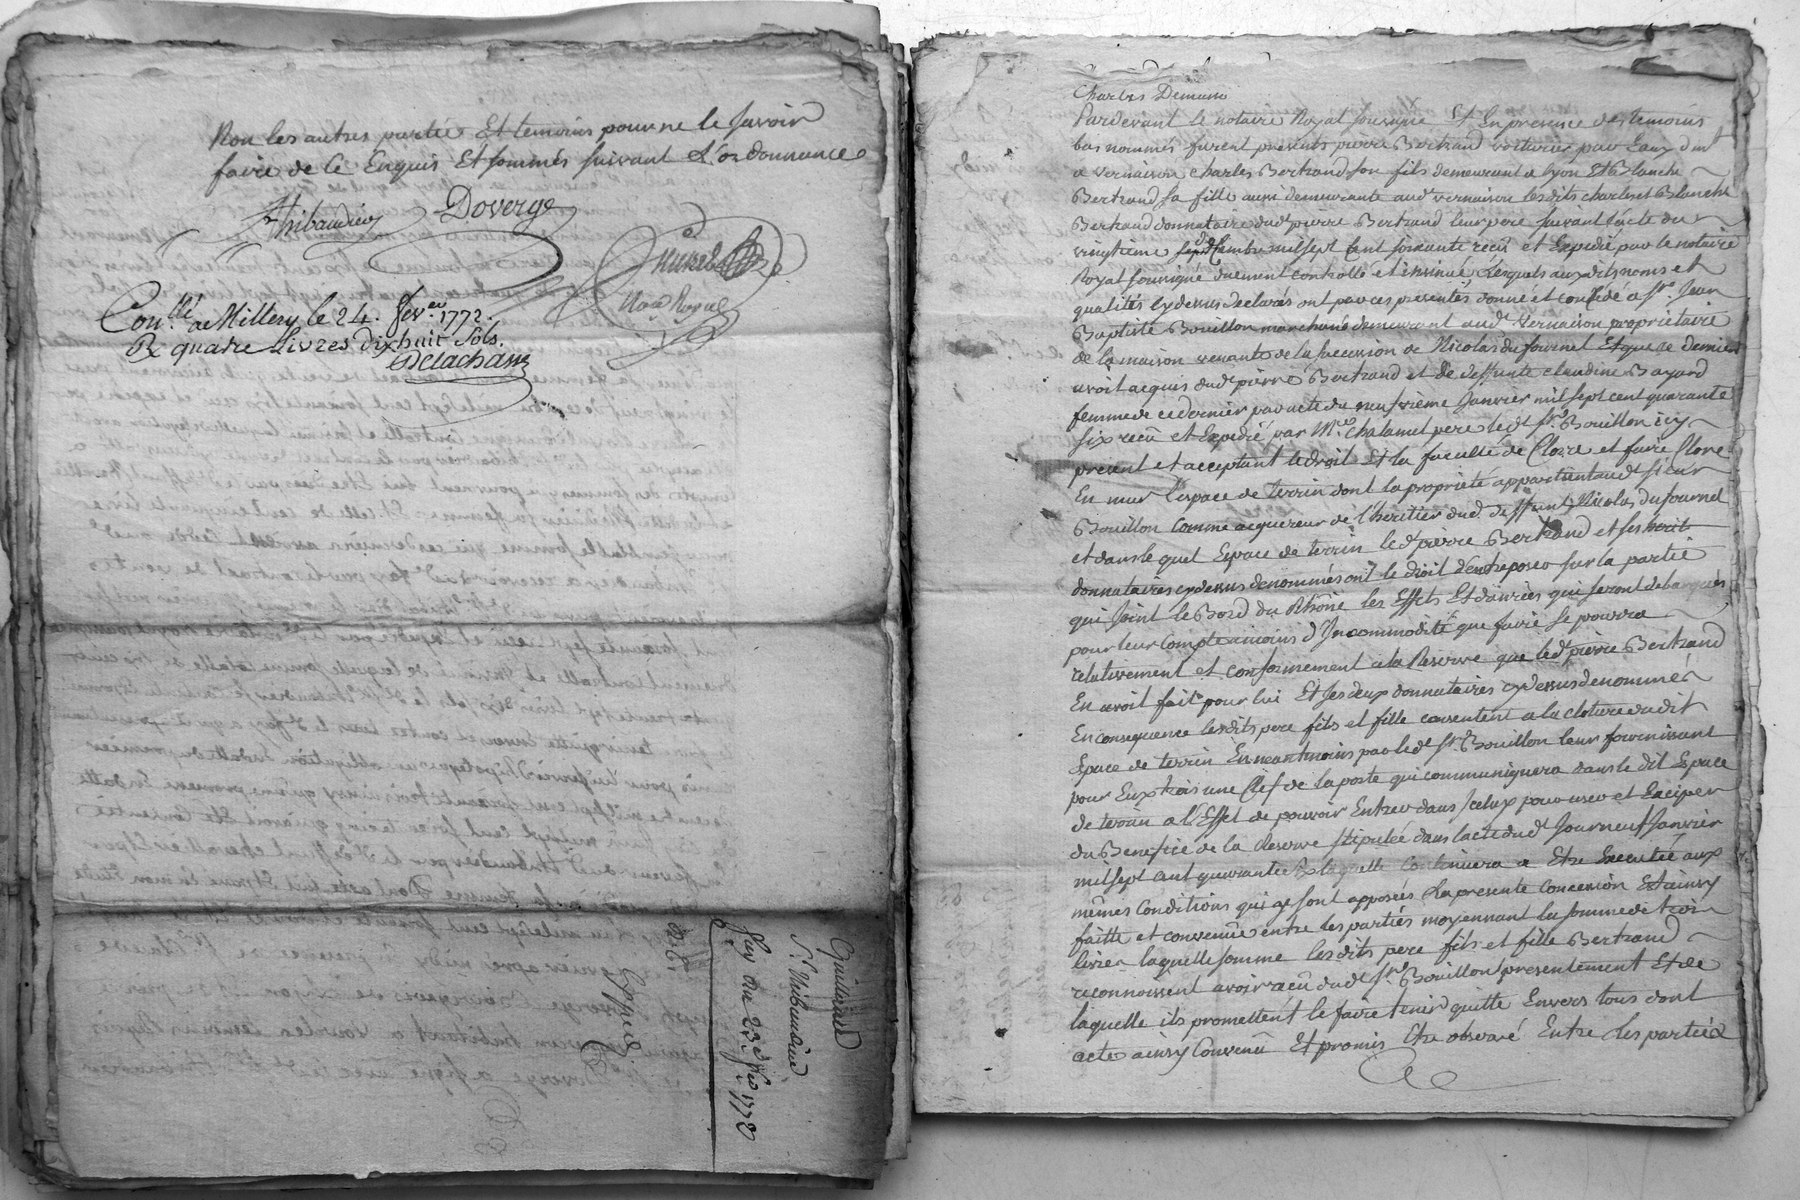 Non les autres parties Et temoins pour ne le scavoir
faire de ce Enquis Et sommés suivant L'ordonnance
Thibaudier Doverge
Not.e Royal
Con.llé a Millery le 24. fev.er 1772.
Rx quatre Livres dix huit sols.
Delachasse
Guillard
S.r Thibaudier
du 23.e fev. 1772
Expedié
Charles Demur
Pardevant le notaire Royal soussigné Et En presence des temoins
bas nommés furent presents pierre Bertrand voiturier par Eaux dmt
a vernaison charles Bertrand son fils demeurant a lyon Et Blanche
Bertrand sa fille aussi demeurante aud. vernaison lesdits charles et Blanche
Bertrand donnataire dud. pierre Bertrand leur pere suivant l'acte du
vingtieme septembre mil sept cent soixante reçû et Expedié par le notaire
Royal soussigné duement controllé et insinué, Lesquels auxdits noms et
qualités cydessus declarés ont par ces presentes donné et concédé a S.r Jean
Baptiste Bouillon marchand demeurant aud. vernaison proprietaire
de la maison venante de la succession de Nicolas du fournel Et que ce dernier
avoit acquis dud. pierre Bertrand et de deffunte claudine Bayard
femme de ce dernier par acte du neufvieme Janvier mil sept cent quarante
six reçû et Expedié par M.re Chalamel pere led. S.r Bouillon icy
present et acceptant le droit Et la faculté de Clore et faire Clore
En mur l'espace de terrin dont la propriété appartient aud. sieur
Bouillon comme acquereur de l'heritier dud. deffunt Nicolas du fournel
et dans le quel Espace de terrin led. pierre Bertrand et ses
donnataires cydessus denommés ont le droit d'entreposer sur la partie
qui joint le Bord du Rhône les Effets Et danrées qui seront debarqués
pour leur compte a moins d'Incommodité que faire se pourra
relativement et conformement a la Reserve que led. pierre Bertrand
En avoit fait pour lui Et ses deux donnataires cydessus denommés
En consequence lesdits pere fils et fille consentent a la cloture dudit
Espace de terrin En neantmoins par led. S.r Bouillon leur fournissant
pour Eux trois une Clef de la porte qui communiquera dans le dit Espace
de terrin a l'Effet de pouvoir Entrer dans Icelux pour user et Exciper
du Benefice de la Reserve stipulée dans l'acte dud. Jour neuf Janvier
mil sept cent quarante six laquelle Continuera a Etre Executée aux
mêmes Conditions qui se sont apposées La presente concession Est ainsy
faitte et convenûe entre les parties moyennant la somme de trois
livres laquelle somme lesdits pere fils et fille Bertrand
reconnoissent avoir reçû dud. S.r Bouillon presentement Et de
laquelle ils promettent le faire tenir quitte Envers tous dont
acte ainsy Convenû Et promis Etre observé Entre les parties